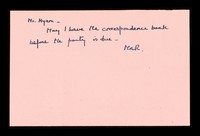 Mr. Hyam -
May I have the correspondence back
before the party is due -